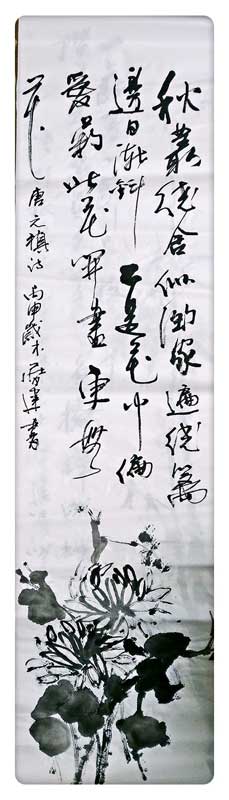 秋叢繞舍似陶家遍繞籬
邊日漸斜不是花中偏
愛菊此花開盡更無
花 唐元稹詩 丙申歲末 書